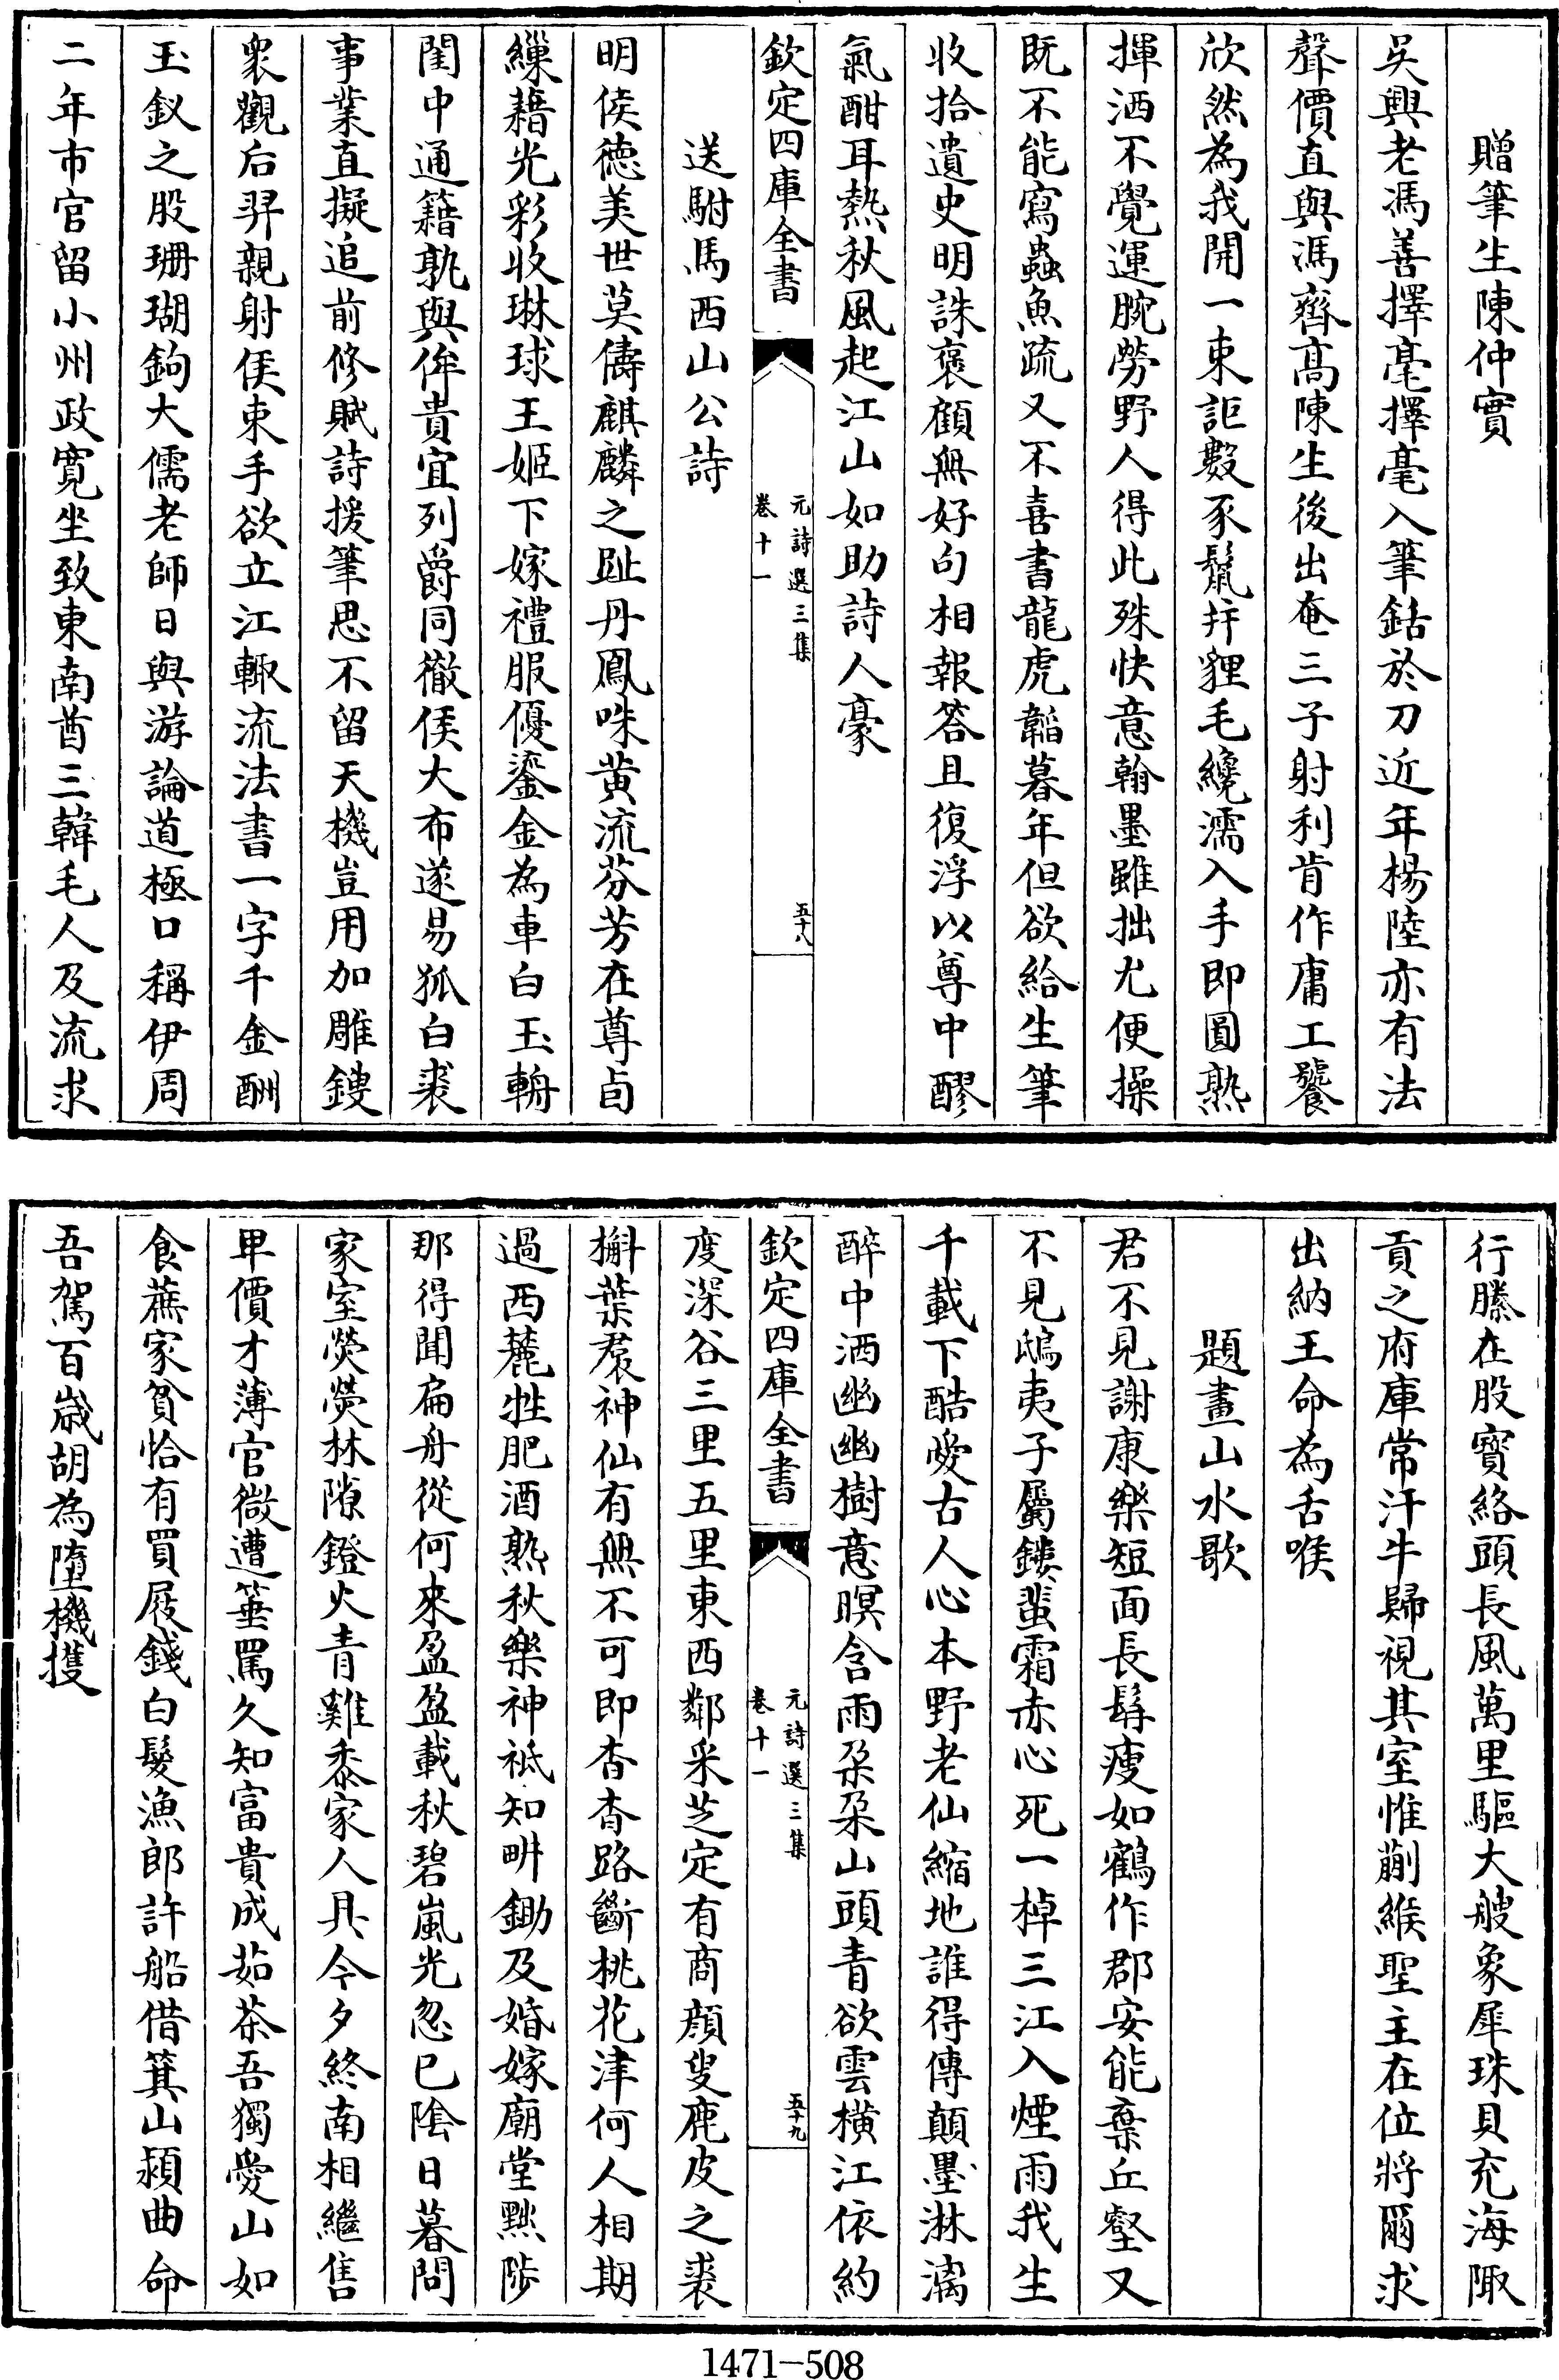 贈筆生陳仲實
吳興老馮善擇毫擇毫入筆銛於刀近年楊陸亦有法
聲價直與馮齊高陳生後出奄三子射利肯作庸工饕
欣然為我開一束詎數豕鬛幷貍毛纔濡入手即圓熟
揮洒不覺運腕勞野人得此殊快意翰墨雖拙尤便操
既不能寫蟲魚疏又不喜書龍虎韜暮年但欲給生筆
收拾遺史明誅褒顧無好句相報答且復浮以尊中醪
氣酣耳熱秋風起江山如助詩人豪
欽定四庫全書
元詩選三集
卷十一
五十八
送駙馬西山公詩
明侯德美世莫儔麒麟之趾丹鳳咮黃流芬芳在尊卣
繅藉光彩收琳球王姬下嫁禮服優鎏金為車白玉輈
閨中通籍孰與侔貴宜列爵同徹侯大布遂易狐白裘
事業直擬追前修賦詩援筆思不留天機豈用加雕鎪
衆觀后羿親射侯束手欲立江輙流法書一字千金酬
玉釵之股珊瑚鉤大儒老師日與游論道極口稱伊周
二年市官留小州政寬坐致東南酋三韓毛人及流求
行縢在股寳絡頭長風萬里驅大艘象犀珠貝充海陬
貢之府庫常汗牛歸視其室惟蒯緱聖主在位將爾求
出納王命為舌喉
題畫山水歌
君不見謝康樂短面長髯瘦如鶴作郡安能棄丘壑又
不見鴟夷子屬鏤蜚霜赤心死一棹三江入煙雨我生
千載下酷愛古人心本野老仙縮地誰得傳顛墨淋漓
醉中洒幽幽樹意暝含雨朶朶山頭青欲雲橫江依約
欽定四庫全書
元詩選三集
卷十一
五十九
度深谷三里五里東西鄰采芝定有商顔叟鹿皮之裘
槲葉裠神仙有無不可即杳杳路斷桃花津何人相期
過西麓牲肥酒熟秋樂神祇知畊鋤及婚嫁廟堂黜陟
那得聞扁舟從何來盈盈載秋碧嵐光忽已隂日暮問
家室熒熒林隙鐙火青雞黍家人具今夕終南相繼售
卑價才薄官微遭箠罵久知富貴成茹荼吾獨愛山如
食蔗家貧恰有買屐錢白髮漁郎許船借箕山潁曲命
吾駕百歲胡為墮機擭
1471-508